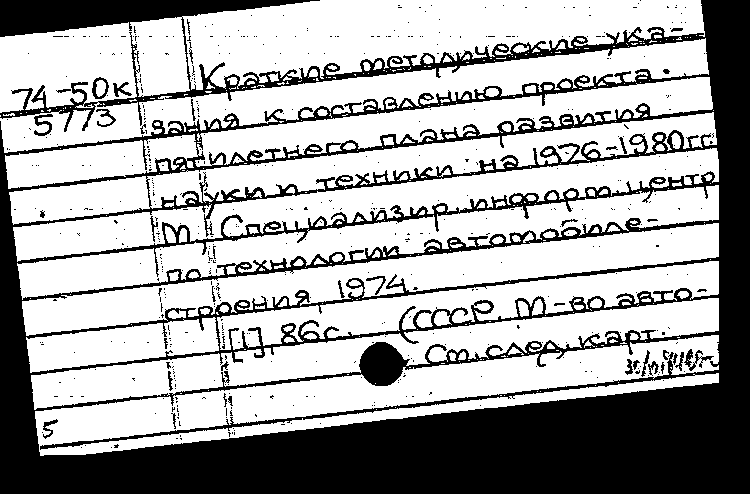 74-50к
5773
Краткие методические ука-
зания к составлению проекта
пятилетнего плана развития
науки и техники на 1976-1980гг.
М., Специализир. информ. центр
по технологии автомобиле-
строения, 1974.
[1], 86с. (СССР. М-во авто-
См. след. карт.
5